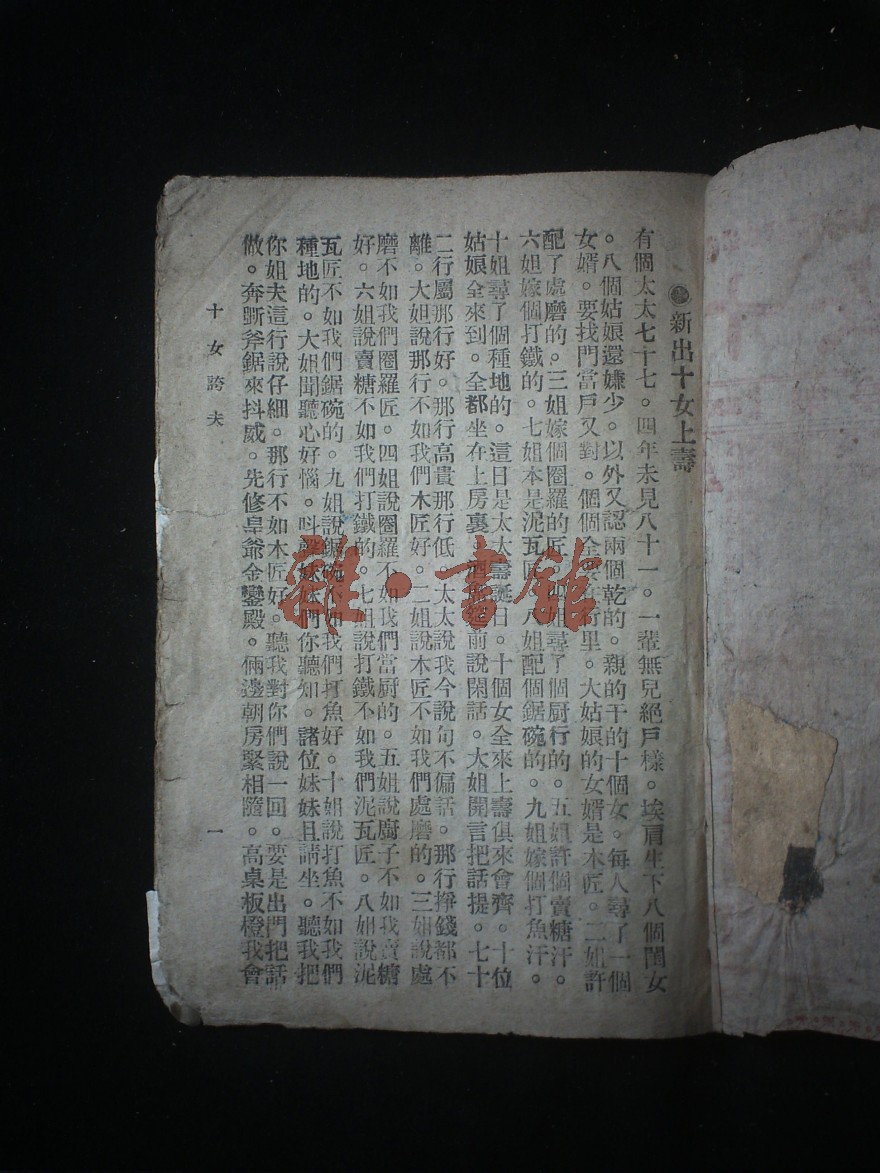 新出十女上壽
有個太太七十七。四年未見八十一。一輩無兒絕戶樣。埃肩生下八個閨女
。八個姑娘還嫌少。以外又認兩個乾的。親的干的十個女。每人尋了一個
女婿。要找門當戶又對。個個全要行里。大姑娘的女婿是木匠。二姐許
配了處磨的。三姐嫁個圈羅的匠。四姐尋了個厨行的。五姐許個賣糖汗。
六姐嫁個打鐵的。七姐本是泥瓦匠。八姐配個鋸碗的。九姐嫁個打魚汗。
十姐尋了個種地的。這日是太太壽誕日。十個女全來上壽俱來會齊。十位
姑娘全來到。全都坐在上房裏。前說閑話。大姐開言把話提。七十
二行屬那行好。那行高貴那行低。太太說我今說句不偏話。那行掙錢都不
離。大姐說那行不如我們木匠好。二姐說木匠不如我們處磨的。三姐說處
磨不如我們圈羅匠。四姐說圈羅不如我們當厨的。五姐說廚子不如我賣糖
好。六姐說賣糖不如我們打鐵的。七姐說打鐵不如我們泥瓦匠。八姐說泥
瓦匠不如我們鋸碗的。九姐說鋸碗不如我們打魚好。十姐說打魚不如我們
種地的。大姐聞聽心好惱。呌聲妹妹們你聽知。諸位妹妹且請坐。聽我把
你姐夫這行說仔細。那行不如木匠好。聽我對你們說一回。要是出門把話
做。奔斵斧鋸來抖威。先修皇爺金鑾殿。倆邊朝房緊相隨。高桌板櫈我會
十女誇夫
一
雜·書館